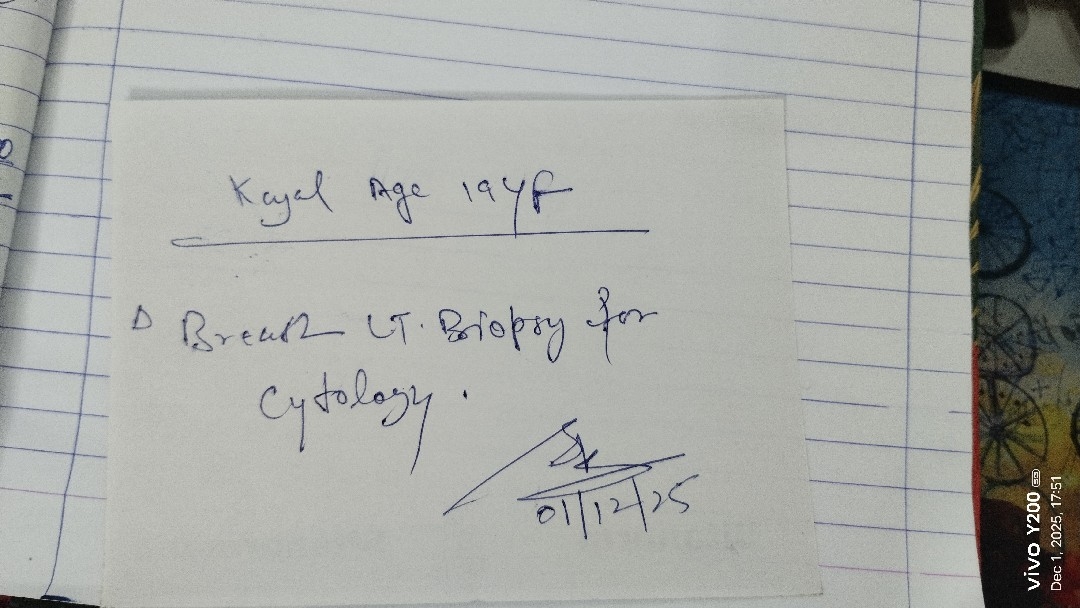 Kajal Age 19YF
Breast LT. Biopsy for
Cytology.
01/12/25
vivo Y200
Dec 1, 2025, 17:51